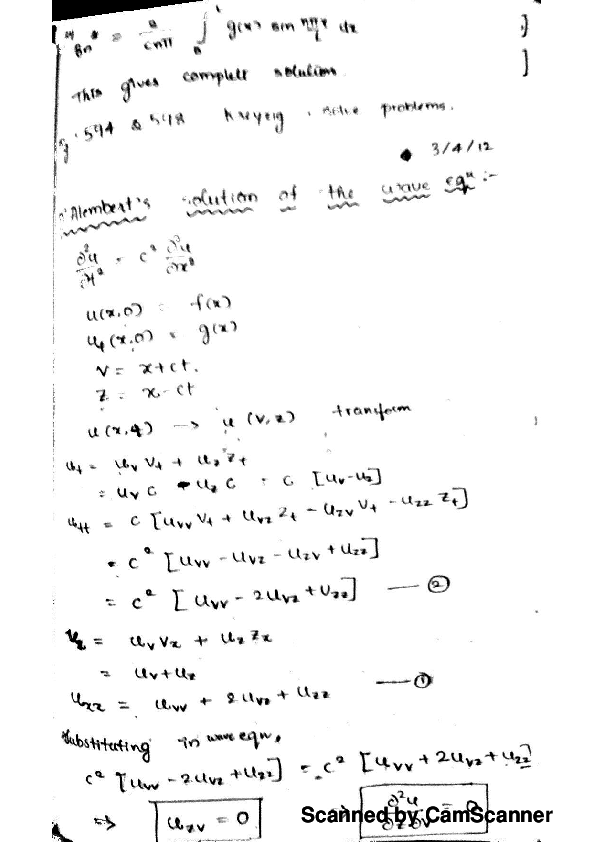 Bn* = 2/cnπ ∫₀ᴸ g(x) sin nπx/L dx ]
This gives complete solution. ]
594 & 598 Kreyzig, solve problems.
3/4/12
D'Alembert's solution of the wave eqⁿ :-
∂²u/∂t² = c² ∂²u/∂x²
u(x,0) = f(x)
u_t(x,0) = g(x)
v = x+ct.
z = x-ct
u(x,t) → u(v,z) transform
u_t = u_v v_t + u_z z_t
= u_v c - u_z c = c [u_v - u_z]
u_tt = c [u_vv v_t + u_vz z_t - u_zv v_t - u_zz z_t]
= c² [u_vv - u_vz - u_zv + u_zz]
= c² [u_vv - 2u_vz + u_zz] — ②
u_x = u_v v_x + u_z z_x
= u_v + u_z
u_xx = u_vv + 2u_vz + u_zz — ①
Substituting in wave eqn.
c² [u_vv - 2u_vz + u_zz] = c² [u_vv + 2u_vz + u_zz]
⇒ u_zv = 0 ⇒ ∂²u/∂z∂v = 0
Scanned by CamScanner